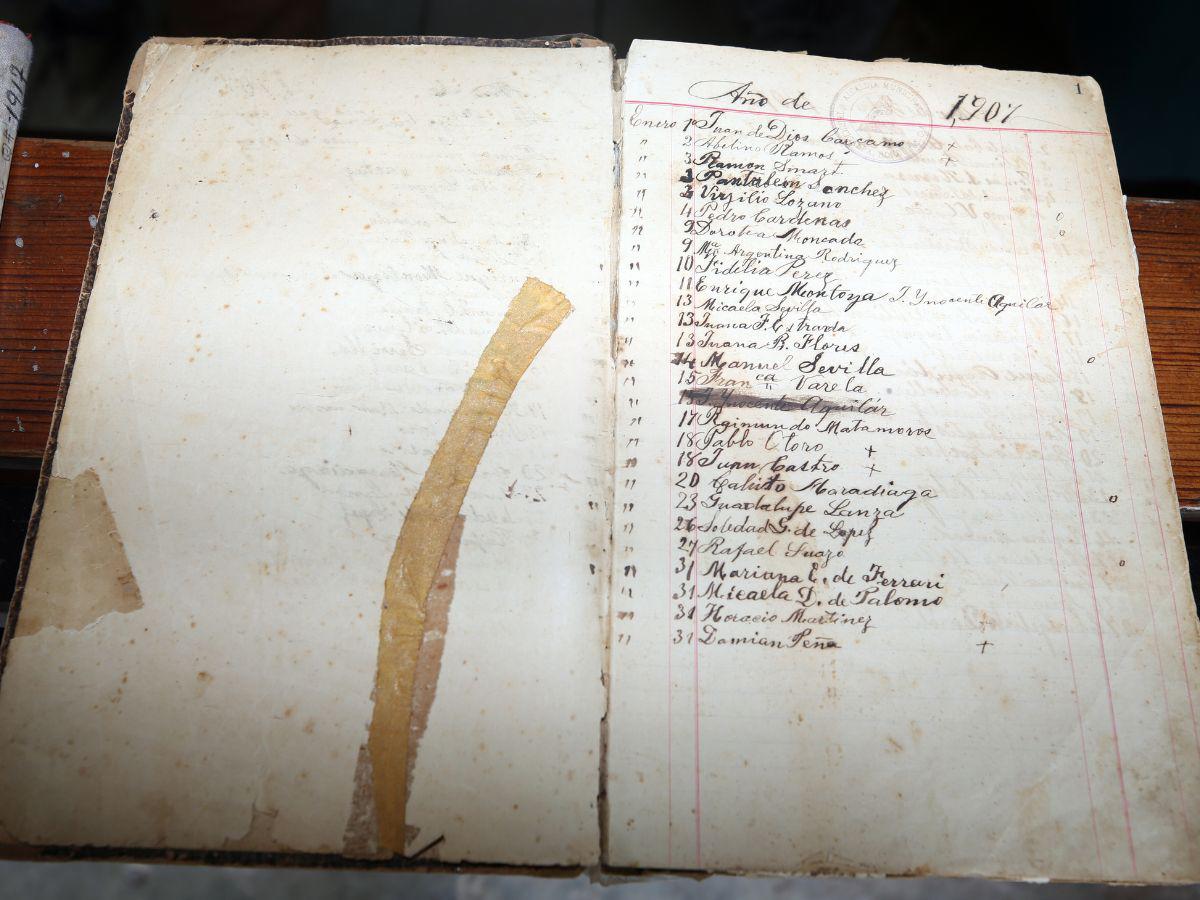 1917
1
Año de 1907
Enero 1º Juan de Dios Carcamo +
" 2 Abelino Ramos +
" 3 Ramon Smart +
" 3 Pantaleon Sanchez
" 3 Virgilio Lozano
" 4 Pedro Cardenas o
" 9 Dorotea Moncada o
" 9 Mª Argentina Rodriguez
" 10 Fidelia Perez
" 11 Enrique Montoya J. Ynocente Aguilar
" 13 Micaela Sevilla
" 13 Juana F. Estrada
" 13 Juana B. Flores
" 14 Manuel Sevilla o
" 15 Franca Varela
" 15 J. Ynocente Aguilár
" 17 Raimundo Matamoros
" 18 Pablo Oloro +
" 18 Juan Castro +
" 20 Calisto Maradiaga
" 23 Guadalupe Lanza o
" 26 Soledad G. de Lopez
" 27 Rafael Suazo
" 31 Mariana E. de Ferrari o
" 31 Micaela D. de Palomo
" 31 Horacio Martinez +
" 31 Damian Peña +